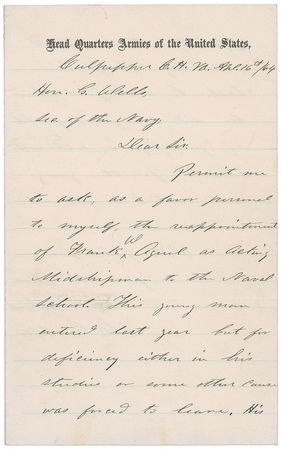 Head Quarters Armies of the United States,
Culpepper C. H. Va. Apl. 16th /64
Hon. G. Wells,
Sec. of the Navy;
Dear Sir:
Permit me
to ask, as a favor personal
to myself, the reappointment
of Frank W as Acting
Midshipman to the Naval
School. This young man
entered last year but for
deficiency either in his
studies or some other cause
was forced to leave. His